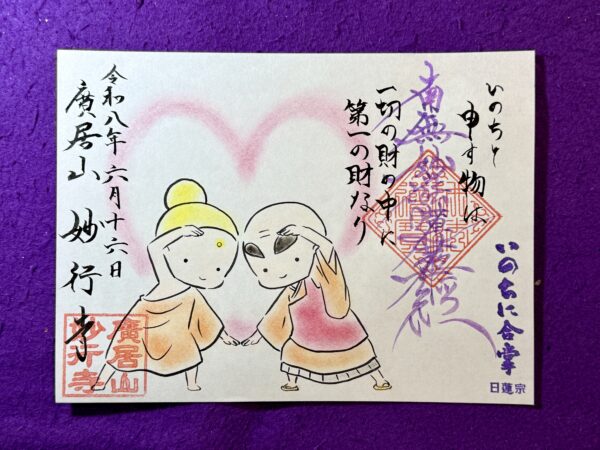 いのちと
申す物は
一切の財の中に
第一の財なり
南無妙法蓮華経
いのちに合掌
日蓮宗
令和八年六月十六日
廣居山 妙行寺
廣居山
妙行寺